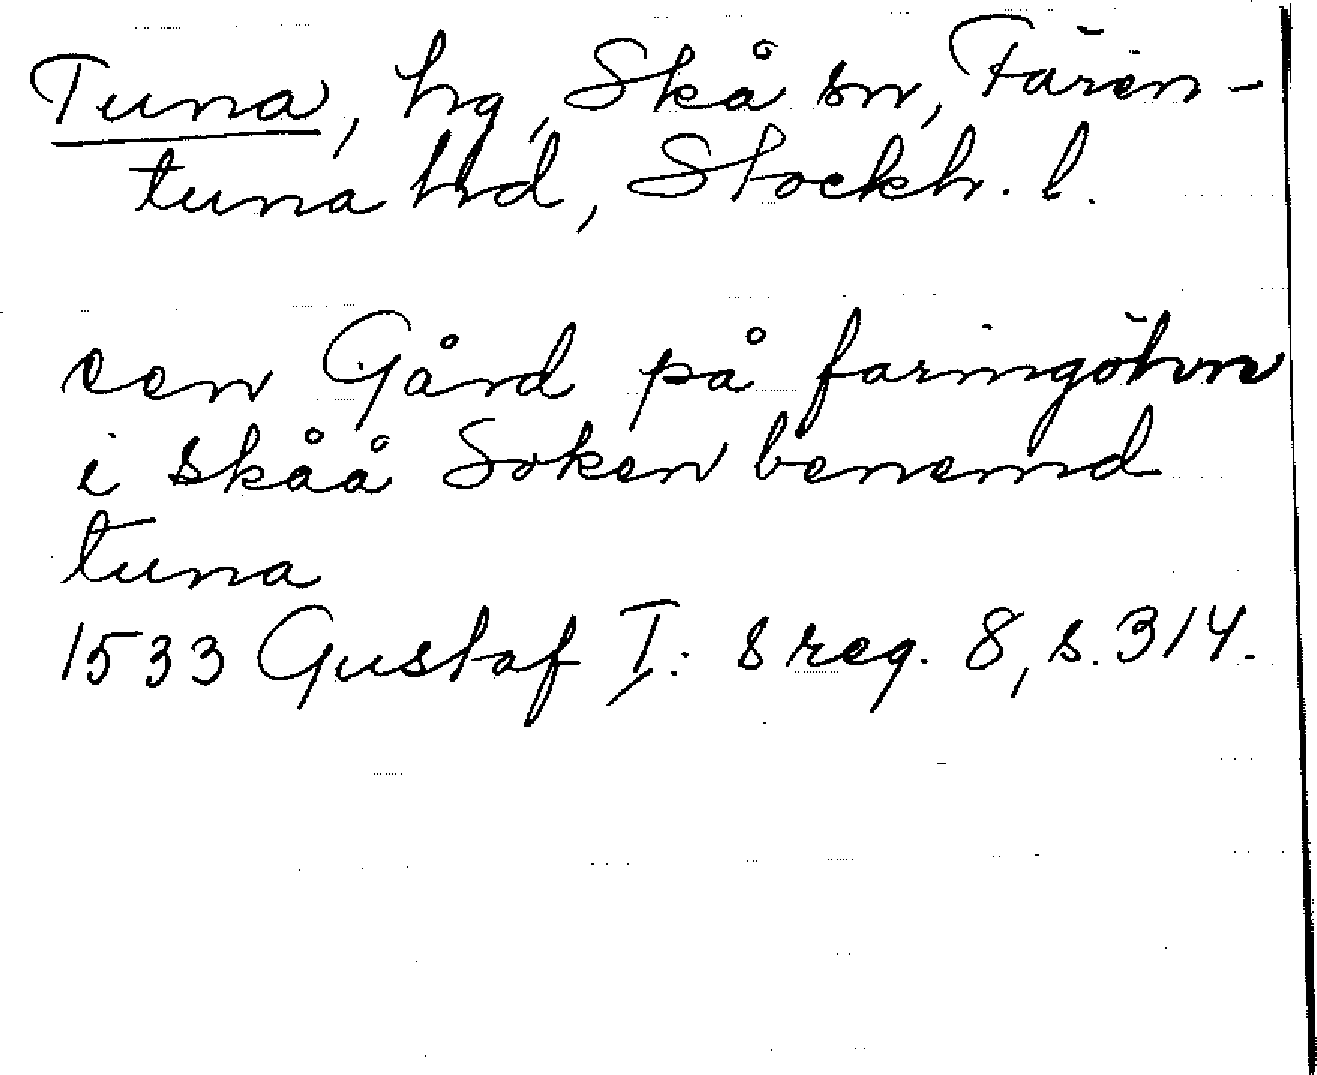 Tuna, hg, Skå sn, Fären-
tuna hd, Stockh. l.
een Gård på faringöhnn
i skåå Soken benemd
tuna
1533 Gustaf I:s reg. 8, s. 314.